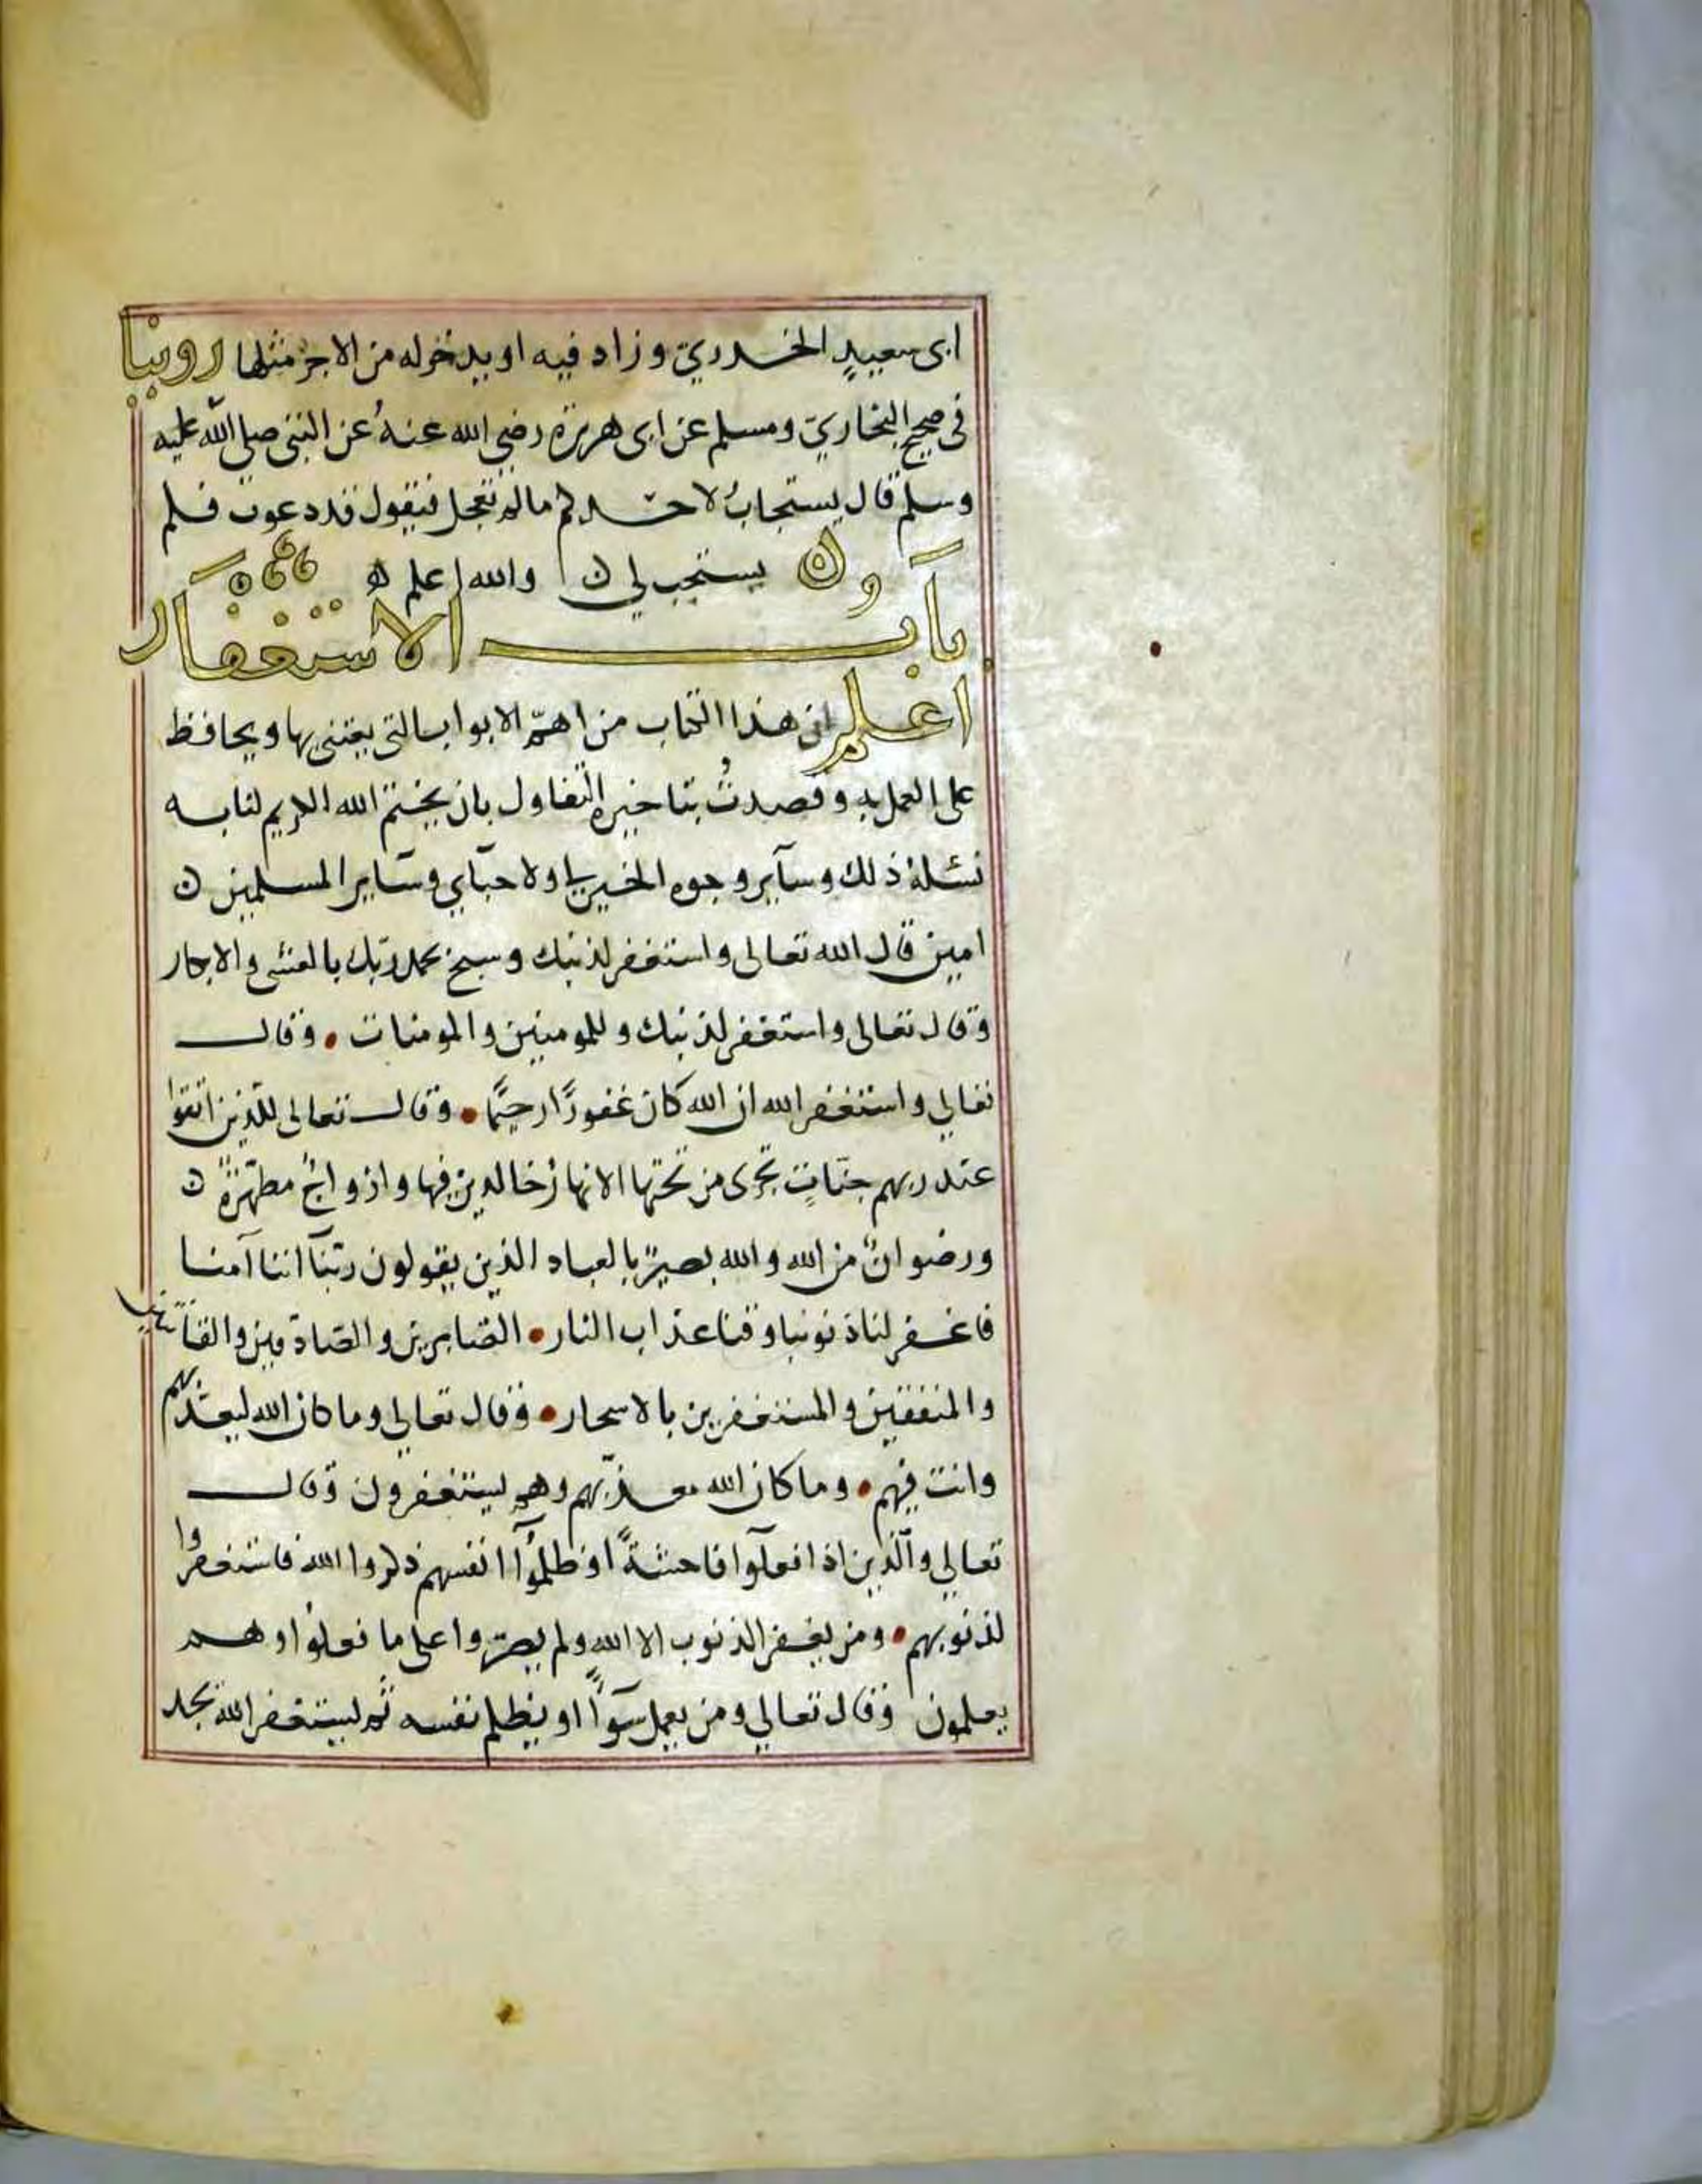 ابى سعيدٍ الخدريّ وزاد فيه او يدخرله من الاجر مثلها روينا
فى صحيح البخاريّ ومسلم عن ابى هريرة رضي الله عنهُ عن النبى صلى الله عليه
وسلم قال يستجابُ لاحدكم مالم تعجل فيقول قد دعوت فلم
يستجب لي والله اعلم
باب الاستغفار
اعلم ان هذا الكتاب من اهمّ الابواب التى يعتنى بها ويحافظ
على العمل به وقصدتُ بتاخيره التفاول بان يختم الله الكريم لنا به
نسئلهُ ذلك وسآير وجوه الخير لي ولاحبآيي وسآير المسلمين
امين قال الله تعالى واستغفر لذنبك وسبح بحمد ربّك بالعشي والابكار
وقال تعالى واستغفر لذنبك وللمومنين والمومنات • وقال
تعالي واستغفر الله ان الله كان غفورًا رحيمًا • وقال تعالى للّذين اتقوا
عند ربهم جنّاتٍ تجرى من تحتها الانهارُ خالدين فيها وازواجٌ مطهّرةٌ
ورضوانٌ من الله والله بصيرٌ بالعباد الذين يقولون ربّنآ اننا آمنا
فاغفر لنا ذنوبنا وقنا عذاب النار • الصّابرين والصّادقين والقانتين
والمنفقين والمستغفرين بالاسحار • وقال تعالي وما كان الله ليعذّبهم
وانت فيهم • وما كان الله معذّبهم وهم ليستغفرون وقال
تعالي والّذين اذا فعلوا فاحشةً او ظلمُوآ انفسهم ذكروا الله فاستغفروا
لذنوبهم • ومن يغفر الذنوب الا الله ولم يصرّوا على ما فعلوا وهم
يعلمون وقال تعالي ومن يعمل سوآً او يظلم نفسه ثم ليستغفر الله يجد